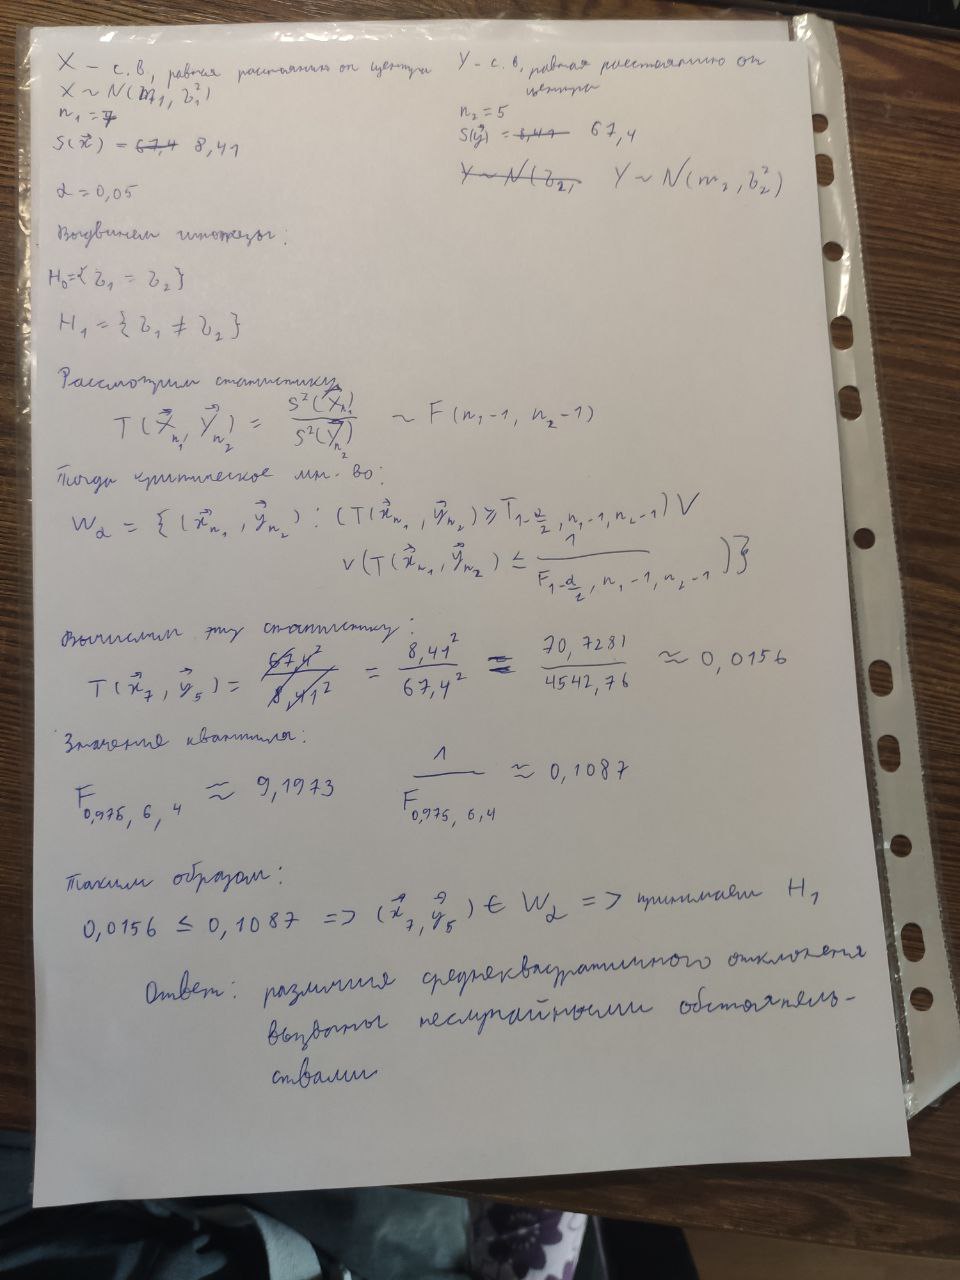 X – с.в, равная расстоянию от центра
X ~ N(m₁, σ₁²)
n₁ = 7
S(x⃗) = 67,4 8,41
α = 0,05
Y – с.в, равная расстоянию от
центра
n₂ = 5
S(y⃗) = 8,41 67,4
Y ~ N(σ₂, Y ~ N(m₂, σ₂²)
Выдвинем гипотезы:
H₀ = {σ₁ = σ₂}
H₁ = {σ₁ ≠ σ₂}
Рассмотрим статистику
T(X⃗n₁, Y⃗n₂) = S²(X⃗n₁) / S²(Y⃗n₂) ~ F(n₁-1, n₂-1)
Тогда критическое мн-во:
Wα = {(x⃗n₁, y⃗n₂) : (T(x⃗n₁, y⃗n₂) ≥ T1-α/2, n₁-1, n₂-1) V
V (T(x⃗n₁, y⃗n₂) ≤ 1 / F1-α/2, n₁-1, n₂-1)}
Вычислим эту статистику:
T(x⃗₇, y⃗₅) = 67,4² / 8,41² = 8,41² / 67,4² = 70,7281 / 4542,76 ≈ 0,0156
Значения квантила:
F0,975, 6, 4 ≈ 9,1973 1 / F0,975, 6, 4 ≈ 0,1087
Таким образом:
0,0156 ≤ 0,1087 => (x⃗₇, y⃗₅) ∈ Wα => принимаем H₁
Ответ: различия среднеквадратичного отклонения
вызваны неслучайными обстоятель-
ствами